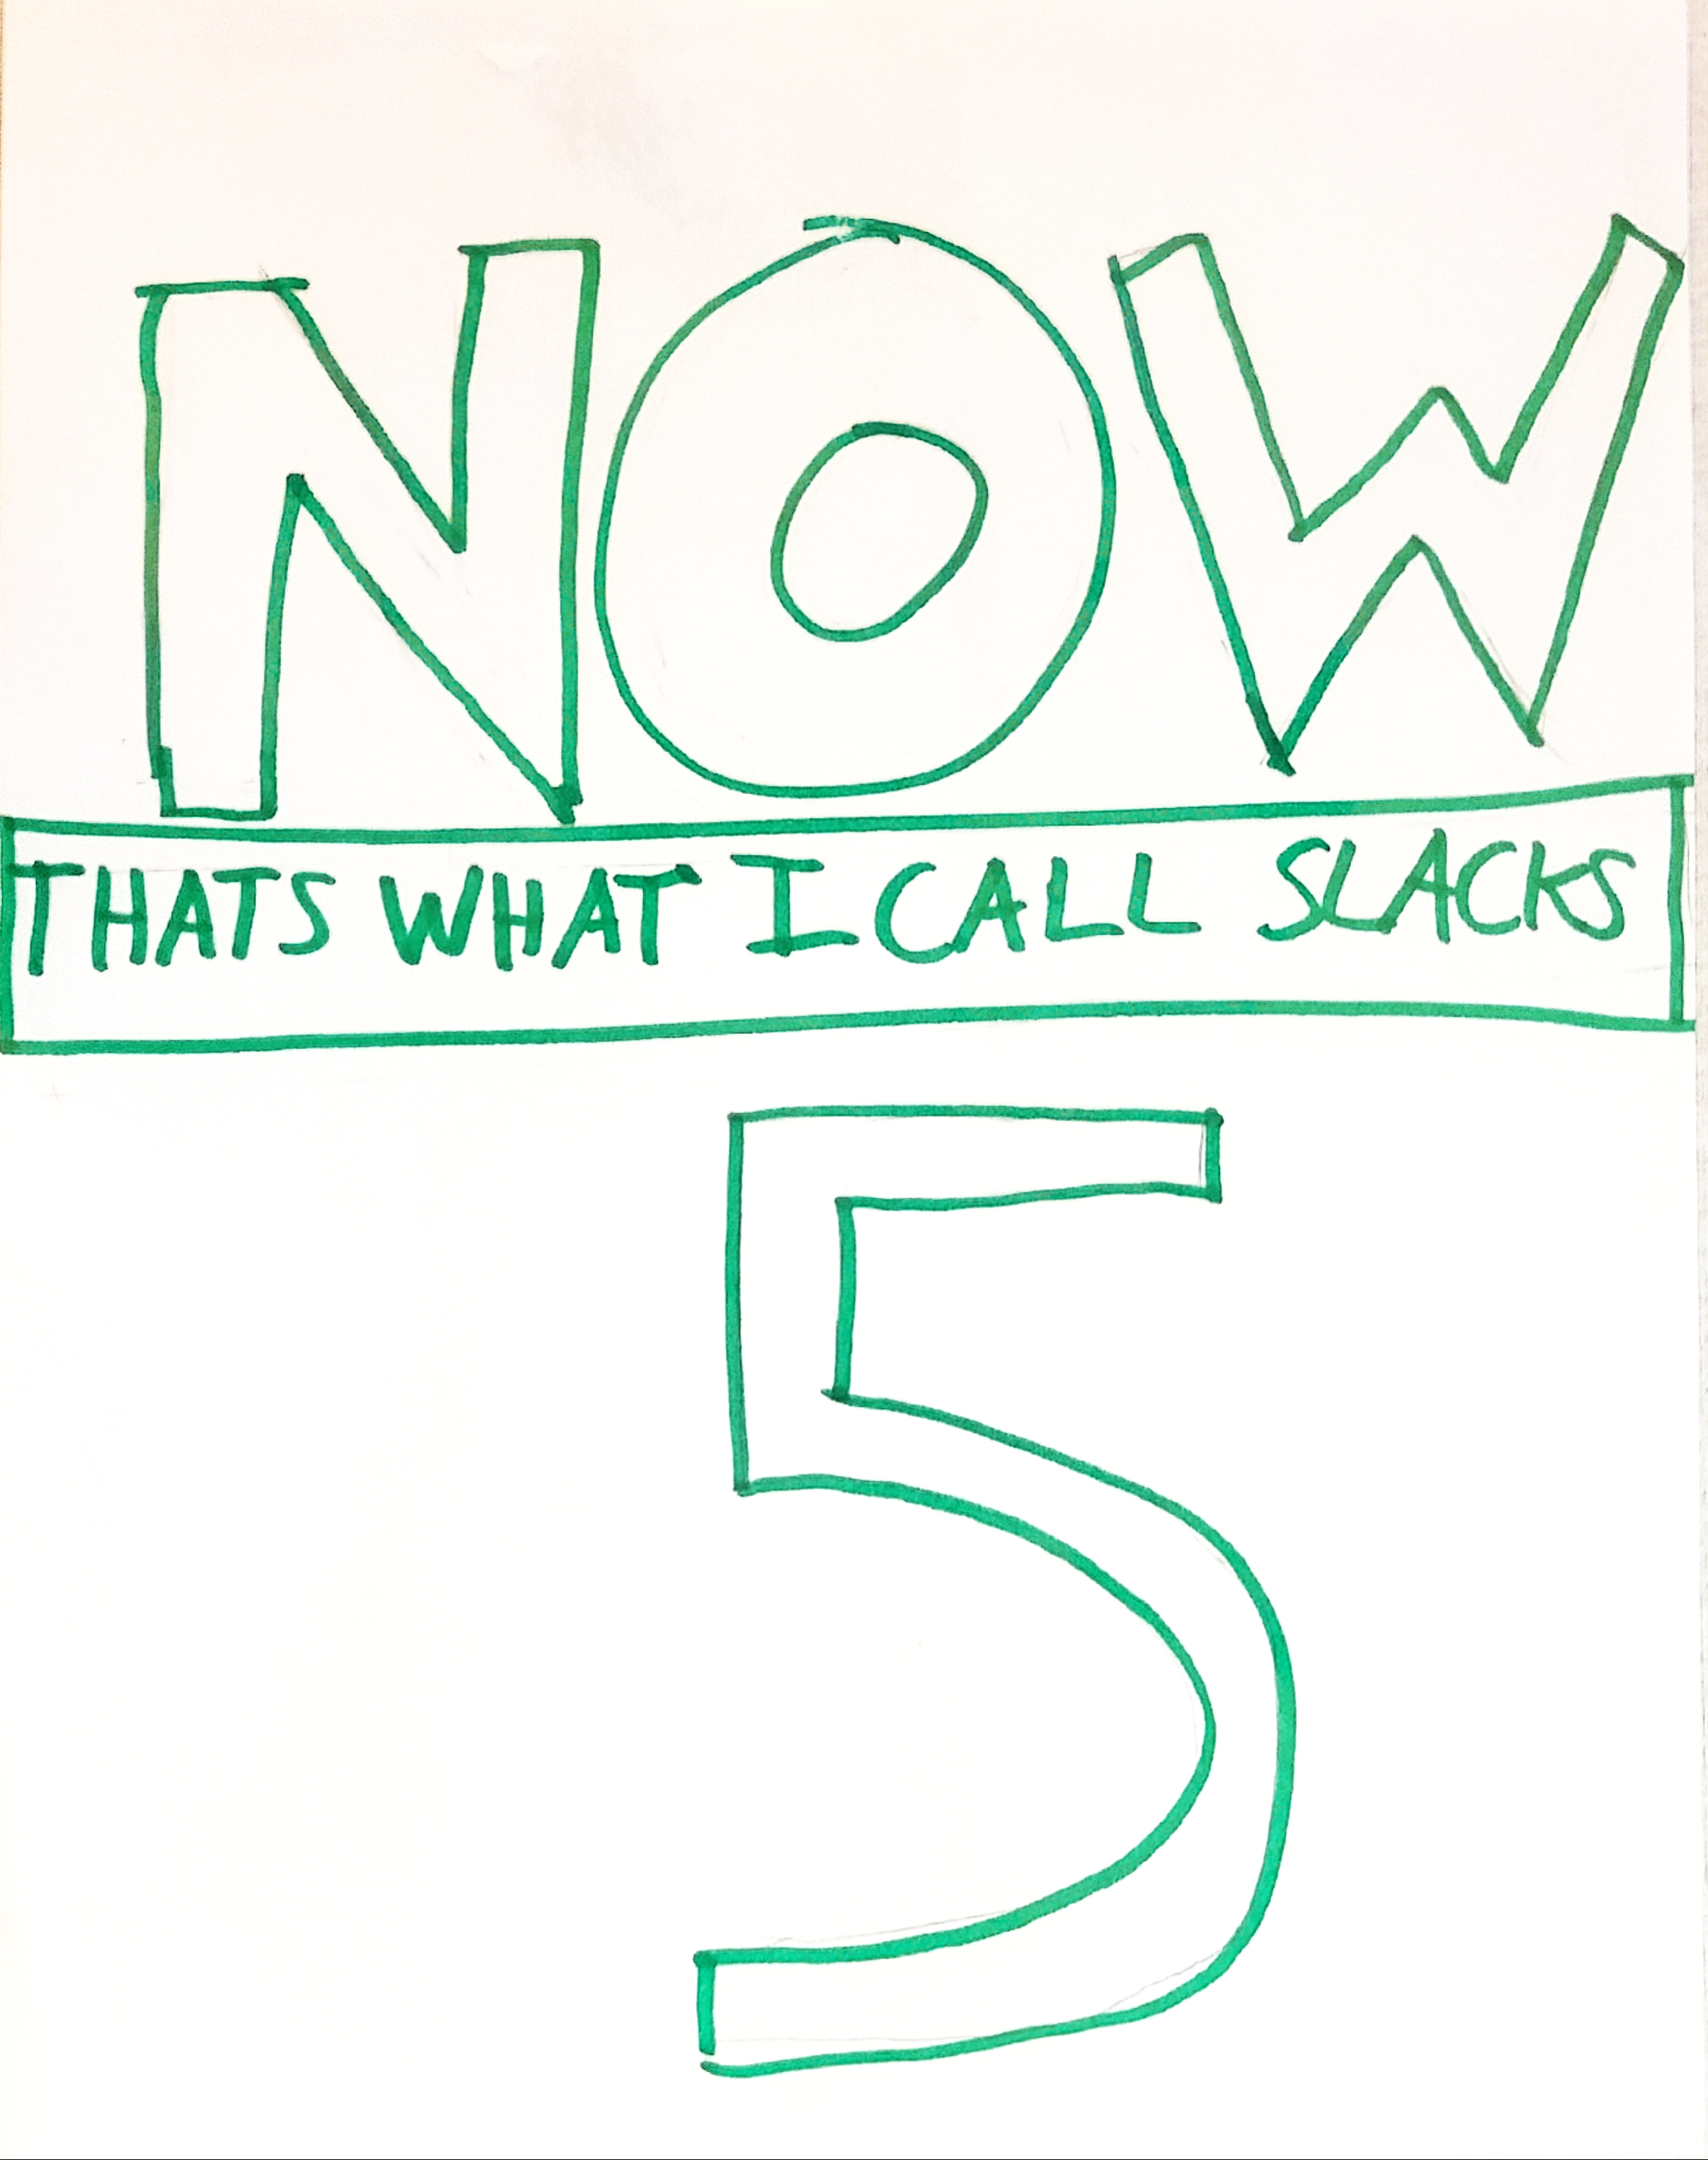 NOW
THATS WHAT I CALL SLACKS
5